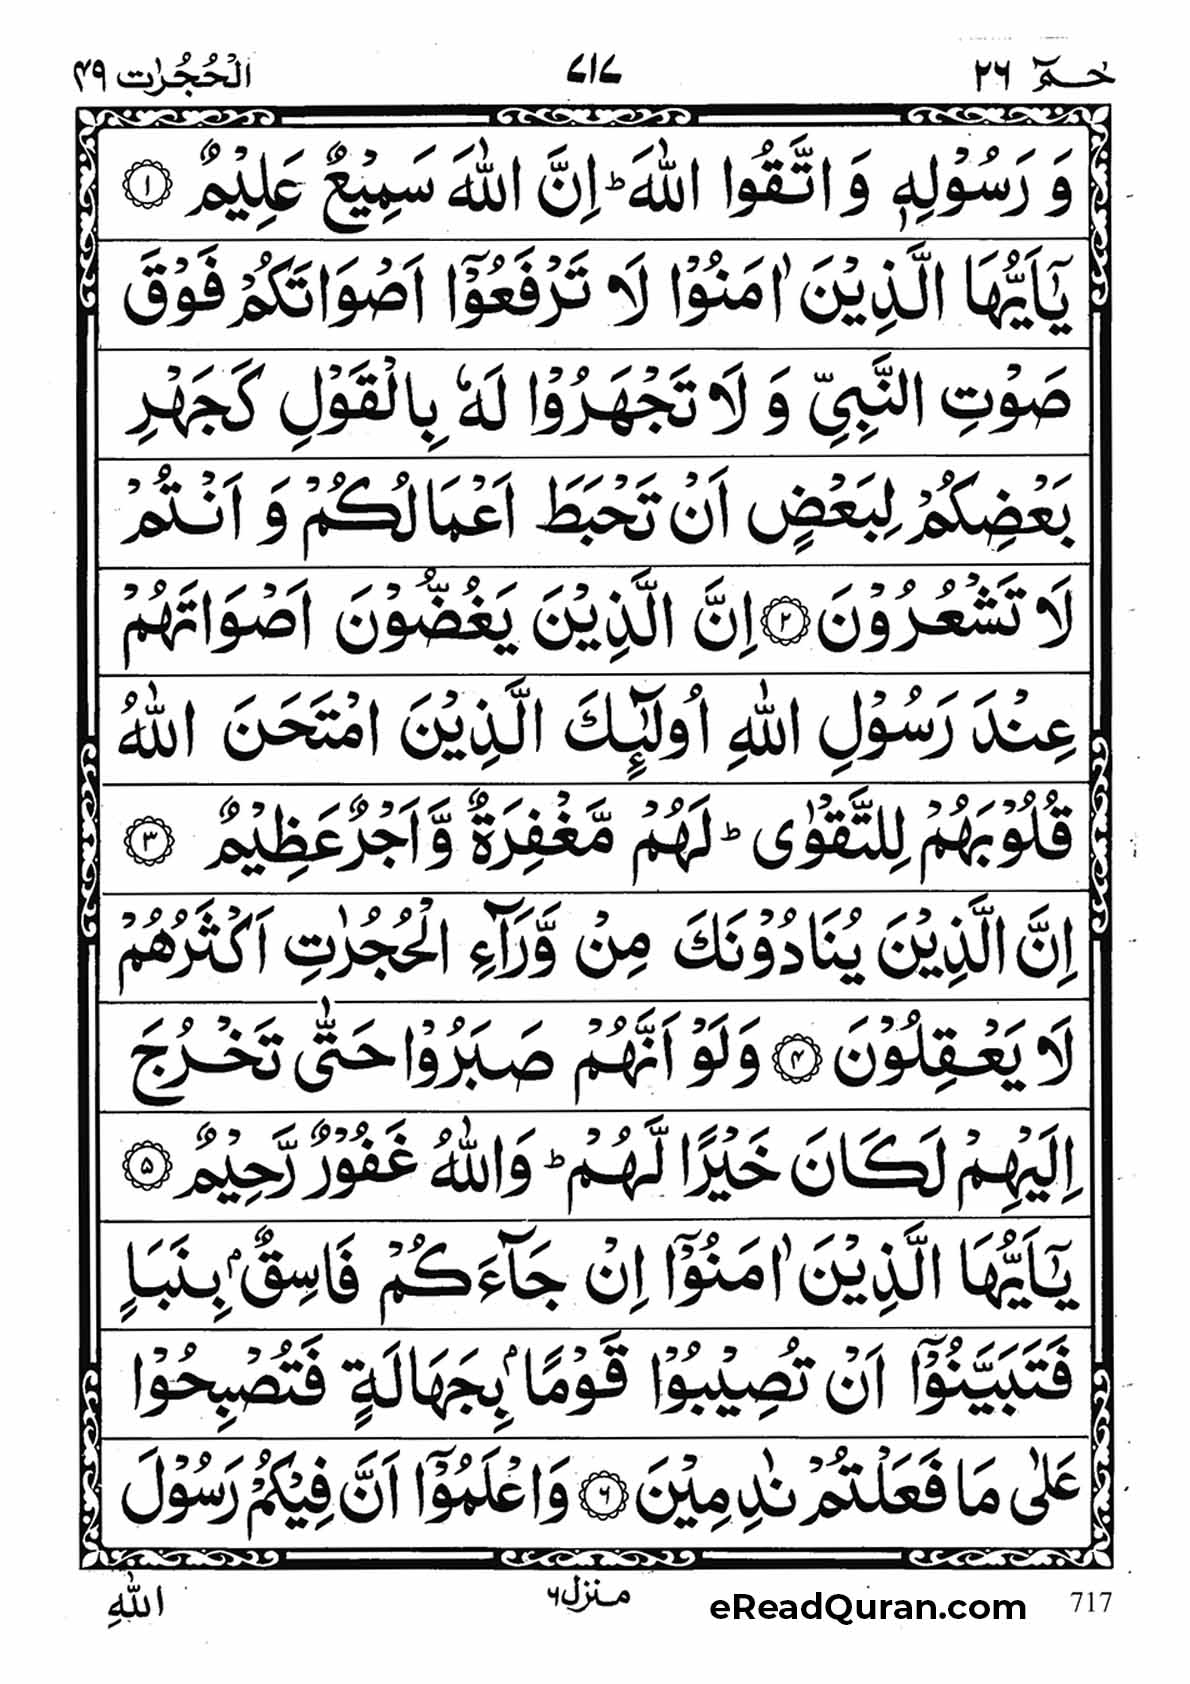 حٰمٓ ٢٦ ٧١٧ الْحُجُرٰت ۴۹
وَ رَسُوْلِهٖ وَ اتَّقُوا اللّٰهَ ؕ اِنَّ اللّٰهَ سَمِيْعٌ عَلِيْمٌ ۱
يٰۤاَيُّهَا الَّذِيْنَ اٰمَنُوْا لَا تَرْفَعُوْۤا اَصْوَاتَكُمْ فَوْقَ
صَوْتِ النَّبِيِّ وَ لَا تَجْهَرُوْا لَهٗ بِالْقَوْلِ كَجَهْرِ
بَعْضِكُمْ لِبَعْضٍ اَنْ تَحْبَطَ اَعْمَالُكُمْ وَ اَنْتُمْ
لَا تَشْعُرُوْنَ ۲ اِنَّ الَّذِيْنَ يَغُضُّوْنَ اَصْوَاتَهُمْ
عِنْدَ رَسُوْلِ اللّٰهِ اُولٰٓئِكَ الَّذِيْنَ امْتَحَنَ اللّٰهُ
قُلُوْبَهُمْ لِلتَّقْوٰى ؕ لَهُمْ مَّغْفِرَةٌ وَّاَجْرٌ عَظِيْمٌ ۳
اِنَّ الَّذِيْنَ يُنَادُوْنَكَ مِنْ وَّرَآءِ الْحُجُرٰتِ اَكْثَرُهُمْ
لَا يَعْقِلُوْنَ ۴ وَلَوْ اَنَّهُمْ صَبَرُوْا حَتّٰى تَخْرُجَ
اِلَيْهِمْ لَكَانَ خَيْرًا لَّهُمْ ؕ وَاللّٰهُ غَفُوْرٌ رَّحِيْمٌ ۵
يٰۤاَيُّهَا الَّذِيْنَ اٰمَنُوْۤا اِنْ جَآءَكُمْ فَاسِقٌۢ بِنَبَاٍ
فَتَبَيَّنُوْۤا اَنْ تُصِيْبُوْا قَوْمًۢا بِجَهَالَةٍ فَتُصْبِحُوْا
عَلٰى مَا فَعَلْتُمْ نٰدِمِيْنَ ۶ وَاعْلَمُوْۤا اَنَّ فِيْكُمْ رَسُوْلَ
717 eReadQuran.com منزل ۶ اللّٰهِ